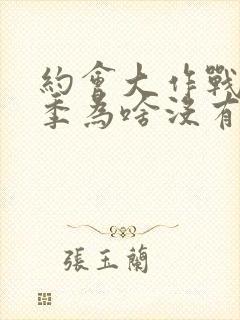 約會大作戰
季為啥沒有
張玉蘭